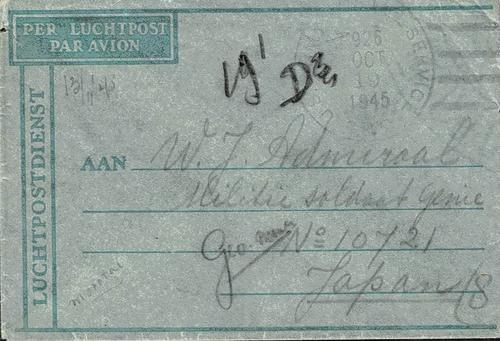 PER LUCHTPOST
PAR AVION
LUCHTPOSTDIENST
925
OCT
19
1945
SERVICE
19' D
AAN W. J. Admiraal
Militie soldaat genie
No 10721
Japan